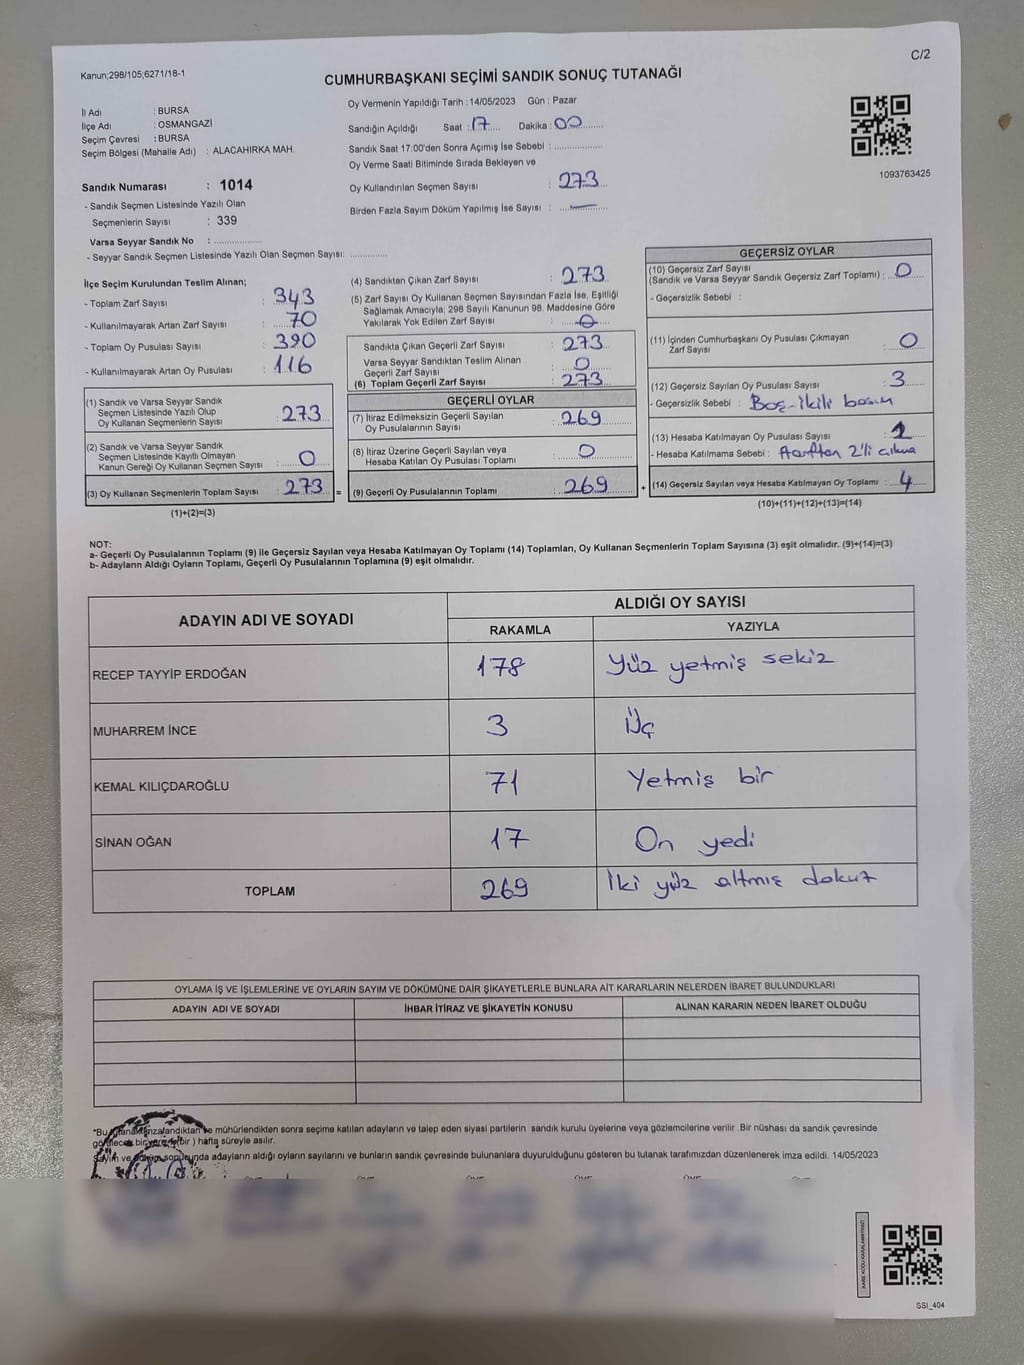 C/2
Kanun;298/105;6271/18-1
CUMHURBAŞKANI SEÇİMİ SANDIK SONUÇ TUTANAĞI
İl Adı : BURSA
İlçe Adı : OSMANGAZİ
Seçim Çevresi : BURSA
Seçim Bölgesi (Mahalle Adı) : ALACAHIRKA MAH.
Sandık Numarası : 1014
- Sandık Seçmen Listesinde Yazılı Olan
Seçmenlerin Sayısı : 339
Varsa Seyyar Sandık No : ..................
- Seyyar Sandık Seçmen Listesinde Yazılı Olan Seçmen Sayısı: ............
Oy Vermenin Yapıldığı Tarih : 14/05/2023 Gün : Pazar
Sandığın Açıldığı Saat : 17 Dakika : 00
Sandık Saat 17:00'den Sonra Açımış İse Sebebi : ..................
Oy Verme Saati Bitiminde Sırada Bekleyen ve
Oy Kullandırılan Seçmen Sayısı : 273
Birden Fazla Sayım Döküm Yapılmış İse Sayısı : —
1093763425
İlçe Seçim Kurulundan Teslim Alınan;
- Toplam Zarf Sayısı : 343
- Kullanılmayarak Artan Zarf Sayısı : 70
- Toplam Oy Pusulası Sayısı : 390
- Kullanılmayarak Artan Oy Pusulası : 116
(1) Sandık ve Varsa Seyyar Sandık
Seçmen Listesinde Yazılı Olup
Oy Kullanan Seçmenlerin Sayısı : 273
(2) Sandık ve Varsa Seyyar Sandık
Seçmen Listesinde Kayıtlı Olmayan
Kanun Gereği Oy Kullanan Seçmen Sayısı : 0
(3) Oy Kullanan Seçmenlerin Toplam Sayısı : 273 =
(1)+(2)=(3)
(4) Sandıktan Çıkan Zarf Sayısı : 273
(5) Zarf Sayısı Oy Kullanan Seçmen Sayısından Fazla İse, Eşitliği
Sağlamak Amacıyla; 298 Sayılı Kanunun 98. Maddesine Göre
Yakılarak Yok Edilen Zarf Sayısı : 0
Sandıkta Çıkan Geçerli Zarf Sayısı : 273
Varsa Seyyar Sandıktan Teslim Alınan
Geçerli Zarf Sayısı : 0
(6) Toplam Geçerli Zarf Sayısı : 273
GEÇERLİ OYLAR
(7) İtiraz Edilmeksizin Geçerli Sayılan
Oy Pusulalarının Sayısı : 269
(8) İtiraz Üzerine Geçerli Sayılan veya
Hesaba Katılan Oy Pusulası Toplamı : 0
(9) Geçerli Oy Pusulalarının Toplamı : 269 +
GEÇERSİZ OYLAR
(10) Geçersiz Zarf Sayısı
(Sandık ve Varsa Seyyar Sandık Geçersiz Zarf Toplamı) : 0
- Geçersizlik Sebebi :
(11) İçinden Cumhurbaşkanı Oy Pusulası Çıkmayan
Zarf Sayısı : 0
(12) Geçersiz Sayılan Oy Pusulası Sayısı : 3
- Geçersizlik Sebebi : Boş-ikili basım
(13) Hesaba Katılmayan Oy Pusulası Sayısı : 1
- Hesaba Katılmama Sebebi : 2'li çıkma
(14) Geçersiz Sayılan veya Hesaba Katılmayan Oy Toplamı : 4
(10)+(11)+(12)+(13)=(14)
NOT:
a- Geçerli Oy Pusulalarının Toplamı (9) ile Geçersiz Sayılan veya Hesaba Katılmayan Oy Toplamı (14) Toplamları, Oy Kullanan Seçmenlerin Toplam Sayısına (3) eşit olmalıdır. (9)+(14)=(3)
b- Adayların Aldığı Oyların Toplamı, Geçerli Oy Pusulalarının Toplamına (9) eşit olmalıdır.
ADAYIN ADI VE SOYADI
ALDIĞI OY SAYISI
RAKAMLA YAZIYLA
RECEP TAYYİP ERDOĞAN 178 Yüz yetmiş sekiz
MUHARREM İNCE 3 Üç
KEMAL KILIÇDAROĞLU 71 Yetmiş bir
SİNAN OĞAN 17 On yedi
TOPLAM 269 İki yüz altmış dokuz
OYLAMA İŞ VE İŞLEMLERİNE VE OYLARIN SAYIM VE DÖKÜMÜNE DAİR ŞİKAYETLERLE BUNLARA AİT KARARLARIN NELERDEN İBARET BULUNDUKLARI
ADAYIN ADI VE SOYADI İHBAR İTİRAZ VE ŞİKAYETİN KONUSU ALINAN KARARIN NEDEN İBARET OLDUĞU
*Bu tutanak imzalandıktan ve mühürlendikten sonra seçime katılan adayların ve talep eden siyasi partilerin sandık kurulu üyelerine veya gözlemcilerine verilir .Bir nüshası da sandık çevresinde
görülecek bir yere (bir) hafta süreyle asılır.
Sayım ve döküm sonucunda adayların aldığı oyların sayılarını ve bunların sandık çevresinde bulunanlara duyurulduğunu gösteren bu tutanak tarafımızdan düzenlenerek imza edildi. 14/05/2023
SSI_404